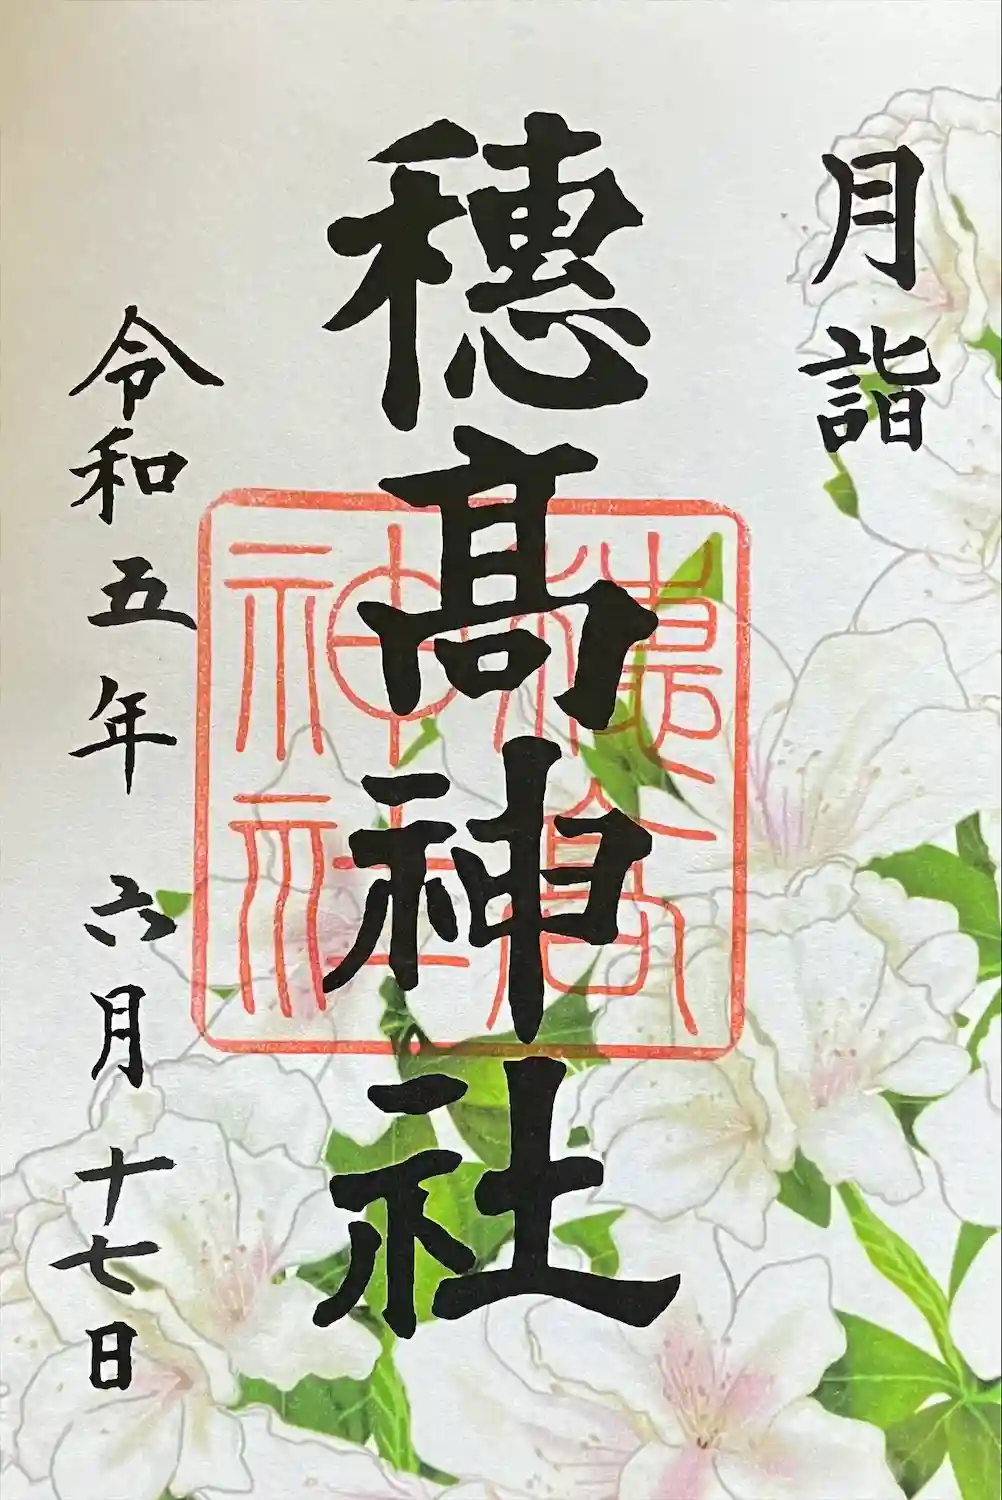 月詣
穗髙神社
穗髙
神社
令和五年 六月十七日